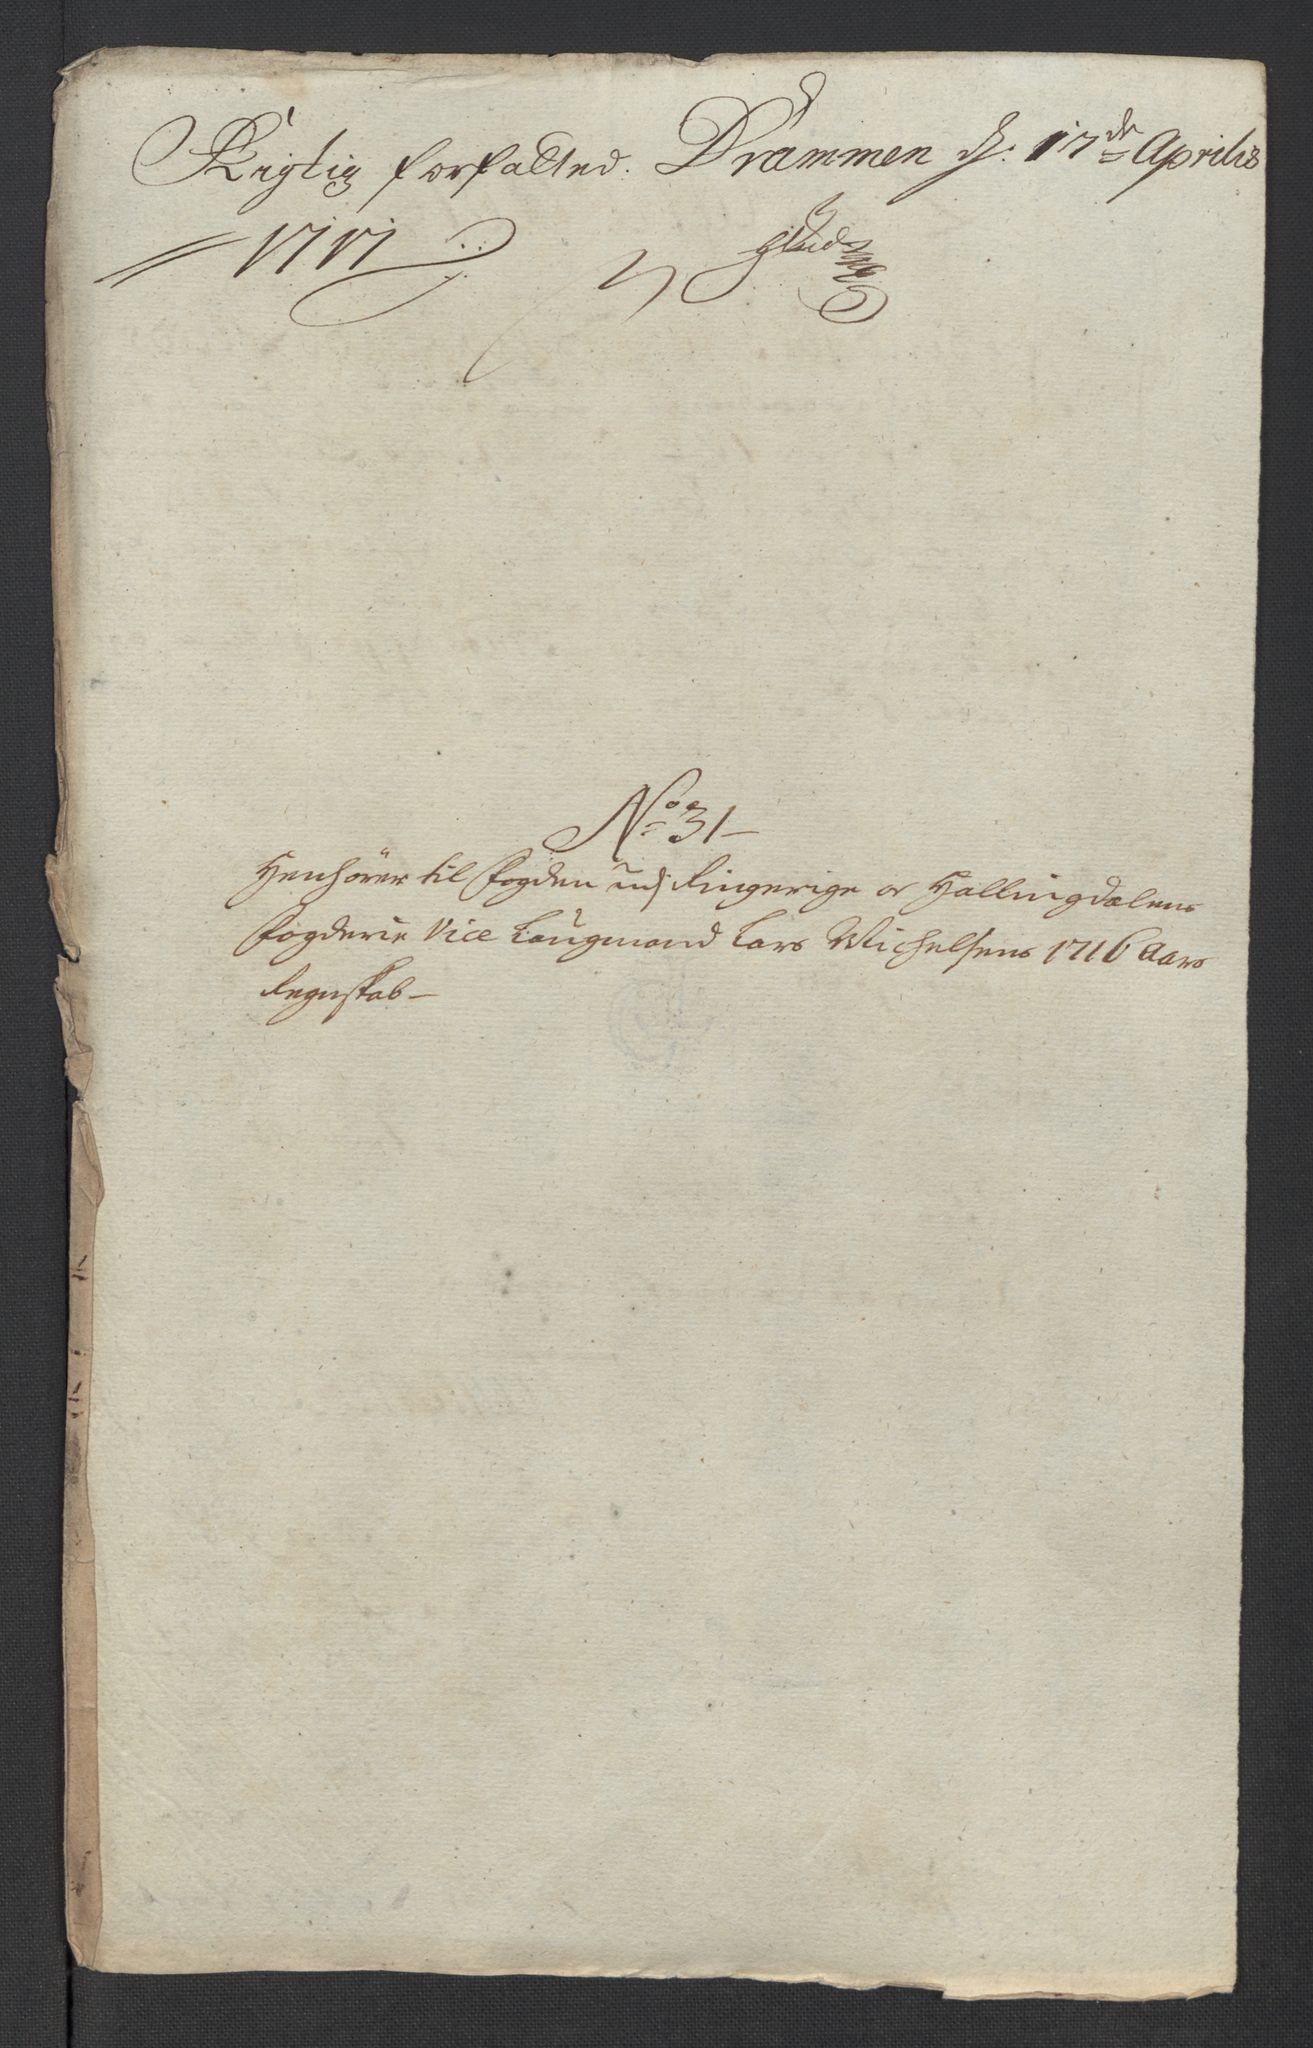 Rigtig forfatted. Drammen d: 17de Aprilis
1717
No 31
Henhører til Fogden udj Ringerige og Hallingdalens
Fogderie Vice Laugmand Lars Michelsens 1716 Aars
Regnskab